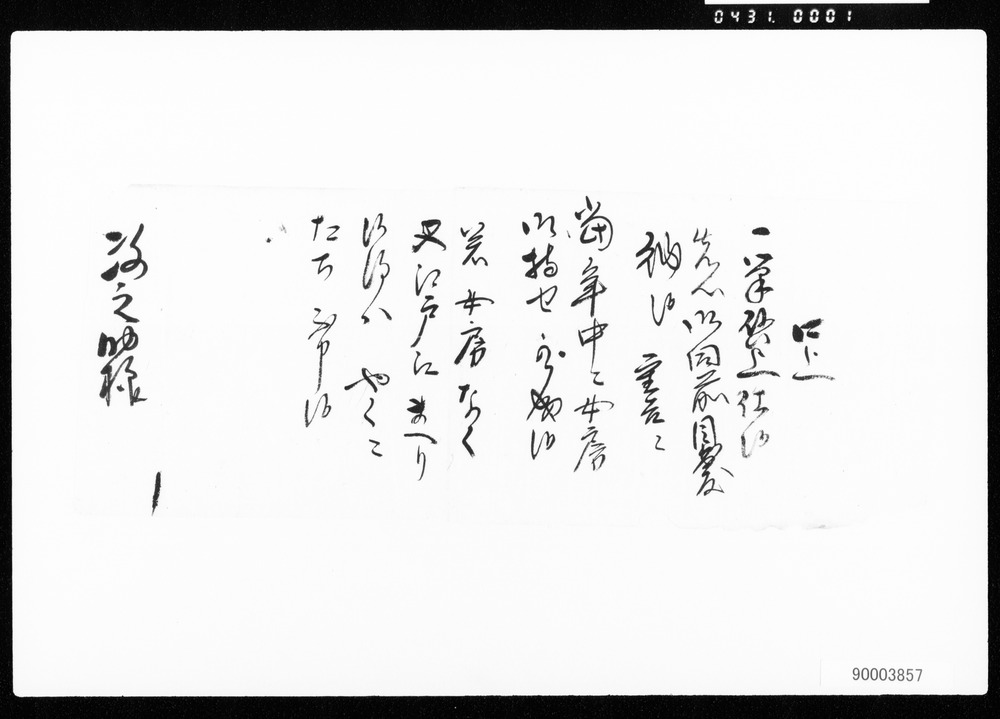 0431.0001
口上
一筆啓上仕候
先以御同前目出度
納候
當年中ニ女房
御持せ可被成候
若女房なく
又江戸江まへり
候得ハやくニ
たち不申候
政之助様
90003857